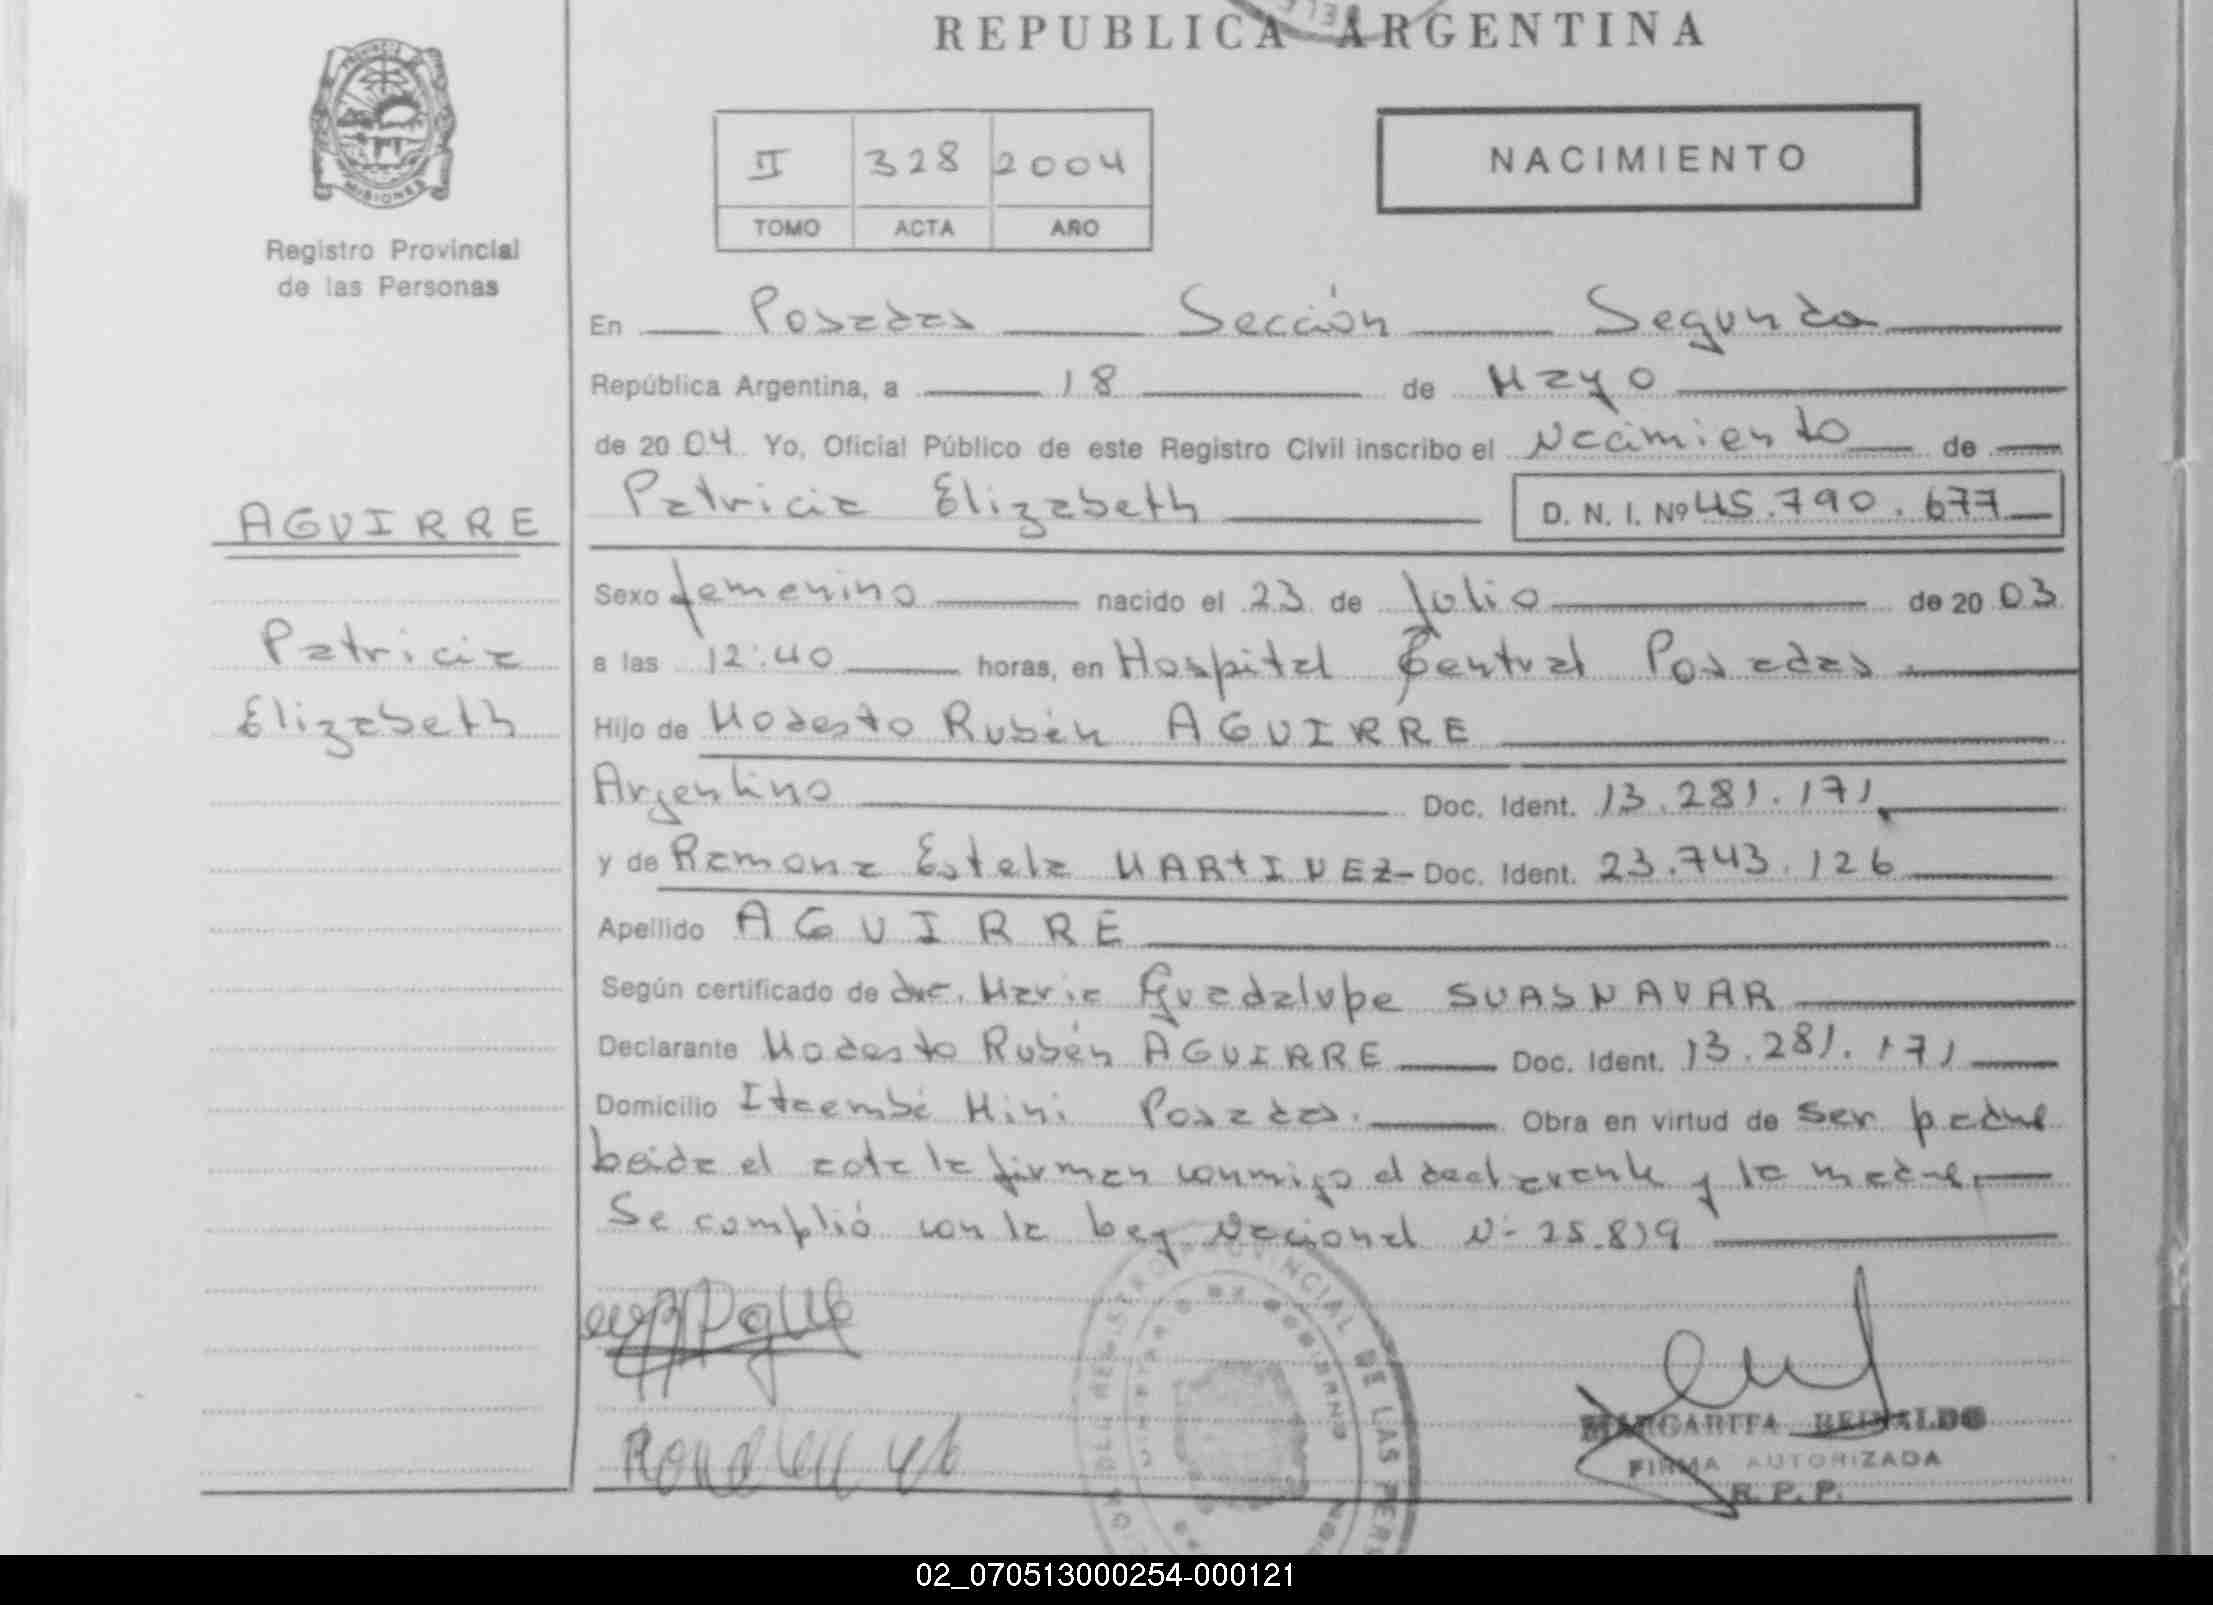 REPUBLICA ARGENTINA
PROVINCIA DE MISIONES
Registro Provincial
de las Personas
II 328 2004
TOMO ACTA AÑO
NACIMIENTO
En Posadas Sección Segunda
República Argentina, a 18 de Mayo
de 2004. Yo, Oficial Público de este Registro Civil inscribo el Nacimiento de
Patricia Elizabeth D. N. I. Nº 45.790.677
AGUIRRE
Patricia
Elizabeth
Sexo femenino nacido el 23 de Julio de 2003
a las 12:40 horas, en Hospital Central Posadas.
Hijo de Modesto Rubén AGUIRRE
Argentino Doc. Ident. 13.281.171,
y de Ramona Estela MARTINEZ- Doc. Ident. 23.743.126
Apellido AGUIRRE
Según certificado de dra. Maria Guadalupe SUASNAVAR
Declarante Modesto Rubén AGUIRRE Doc. Ident. 13.281.171
Domicilio Itaembé Mini Posadas. Obra en virtud de ser padre
Leida el acta la firman conmigo el declarante y la madre,
Se cumplió con la Ley Nacional Nº 25.819
REGISTRO PROVINCIAL DE LAS PERS
MARGARITA REINALDO
FIRMA AUTORIZADA
R. P. P.
02_070513000254-000121